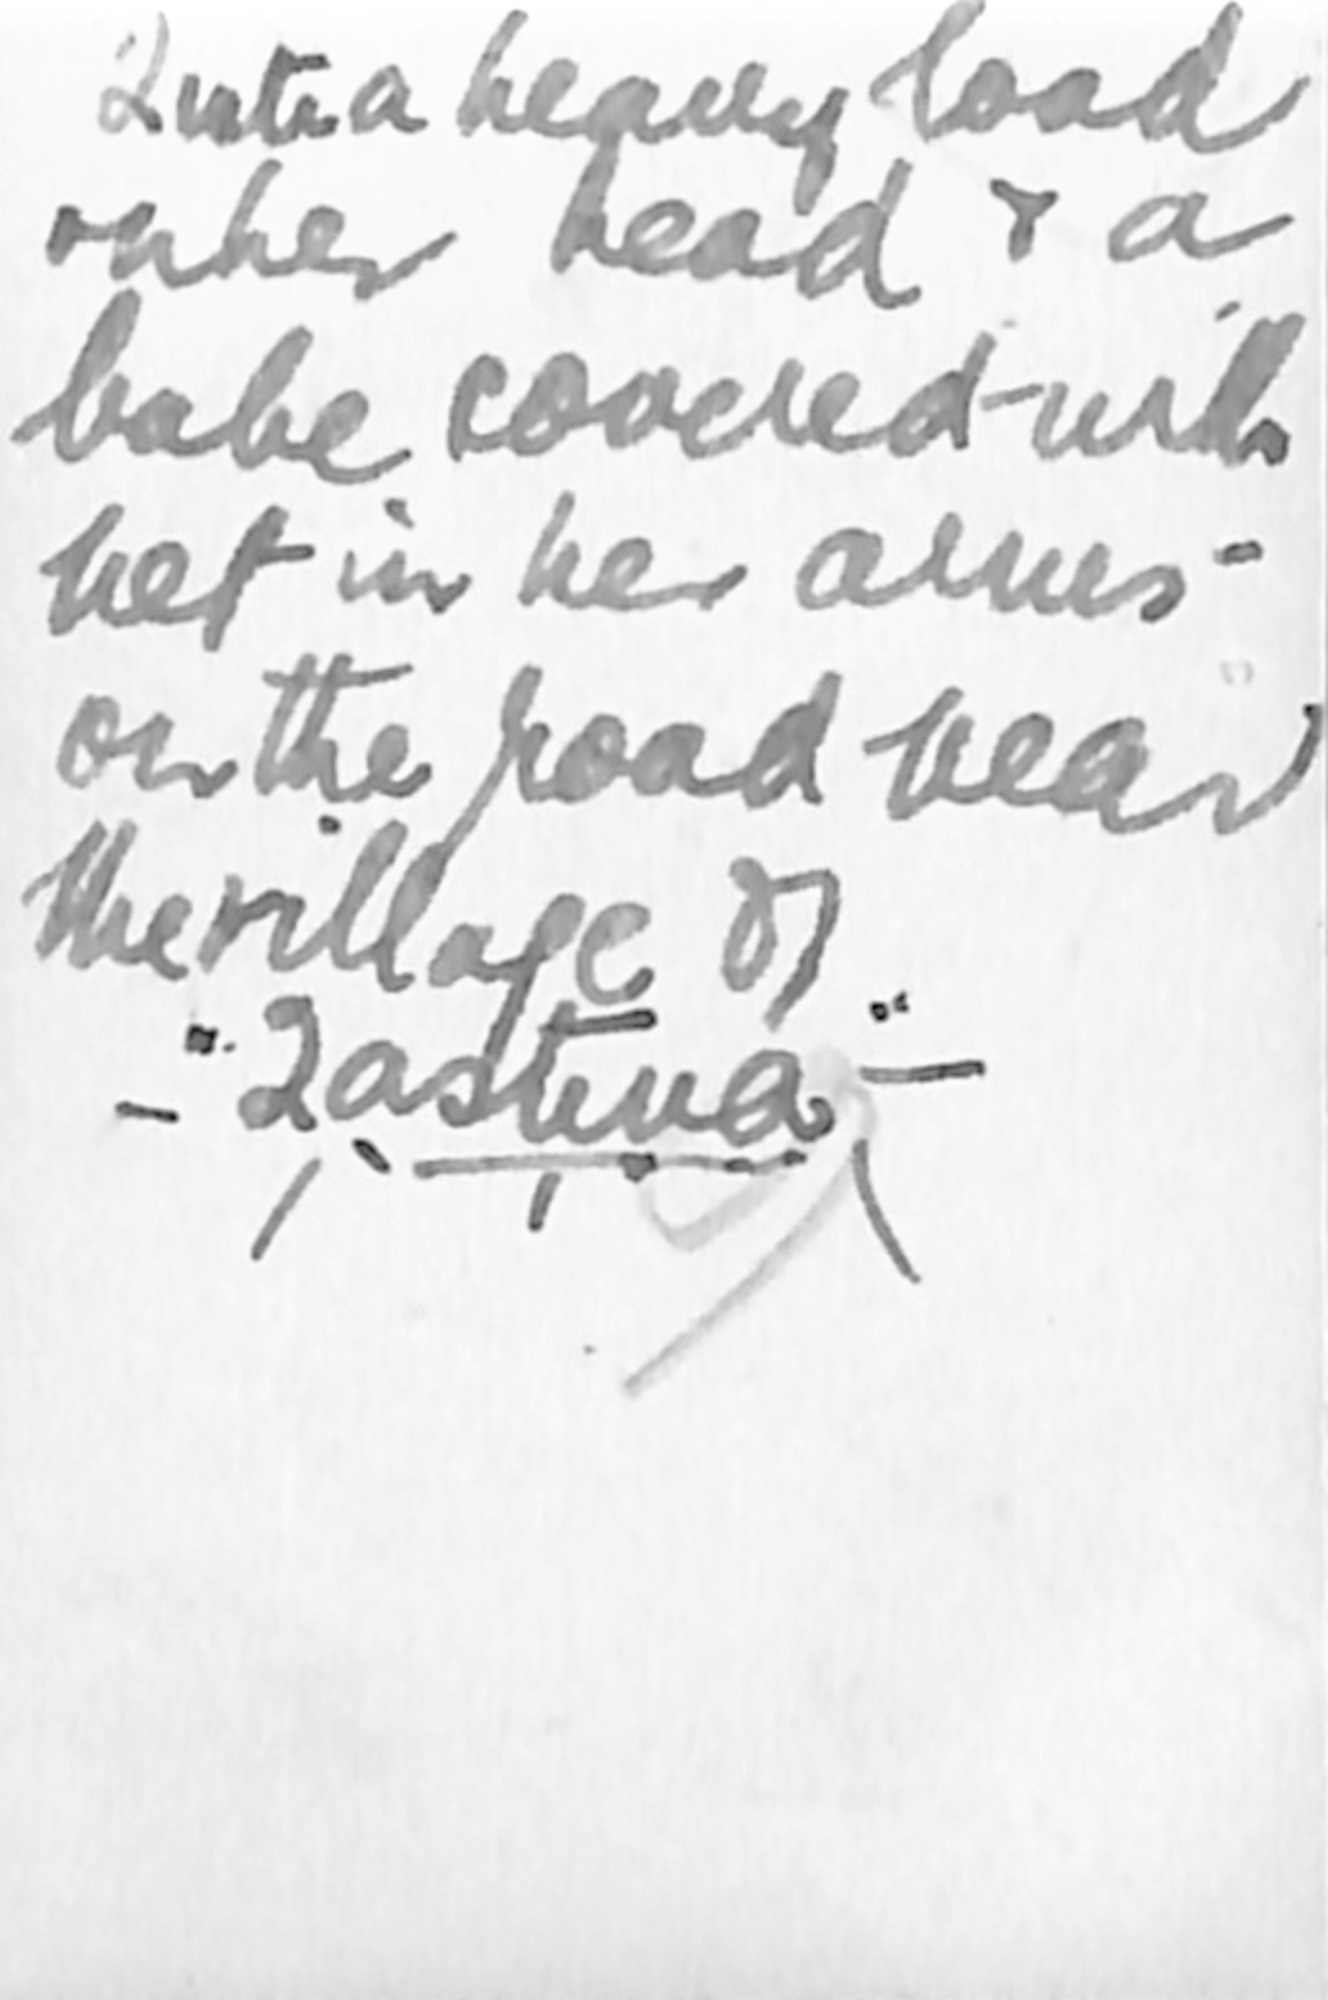 a heavy load
on her head & a
babe covered with
net in her arms -
on the road near
the village of